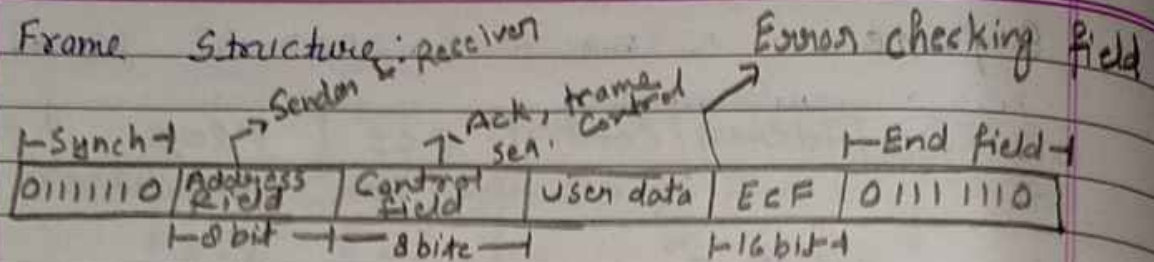 Frame Structure: Receiver Error checking field
Sender & Ack, frame control
seq.
Synch End field
01111110 Address Field Control field User data ECF 01111110
8 bit 8 bite 16 bit